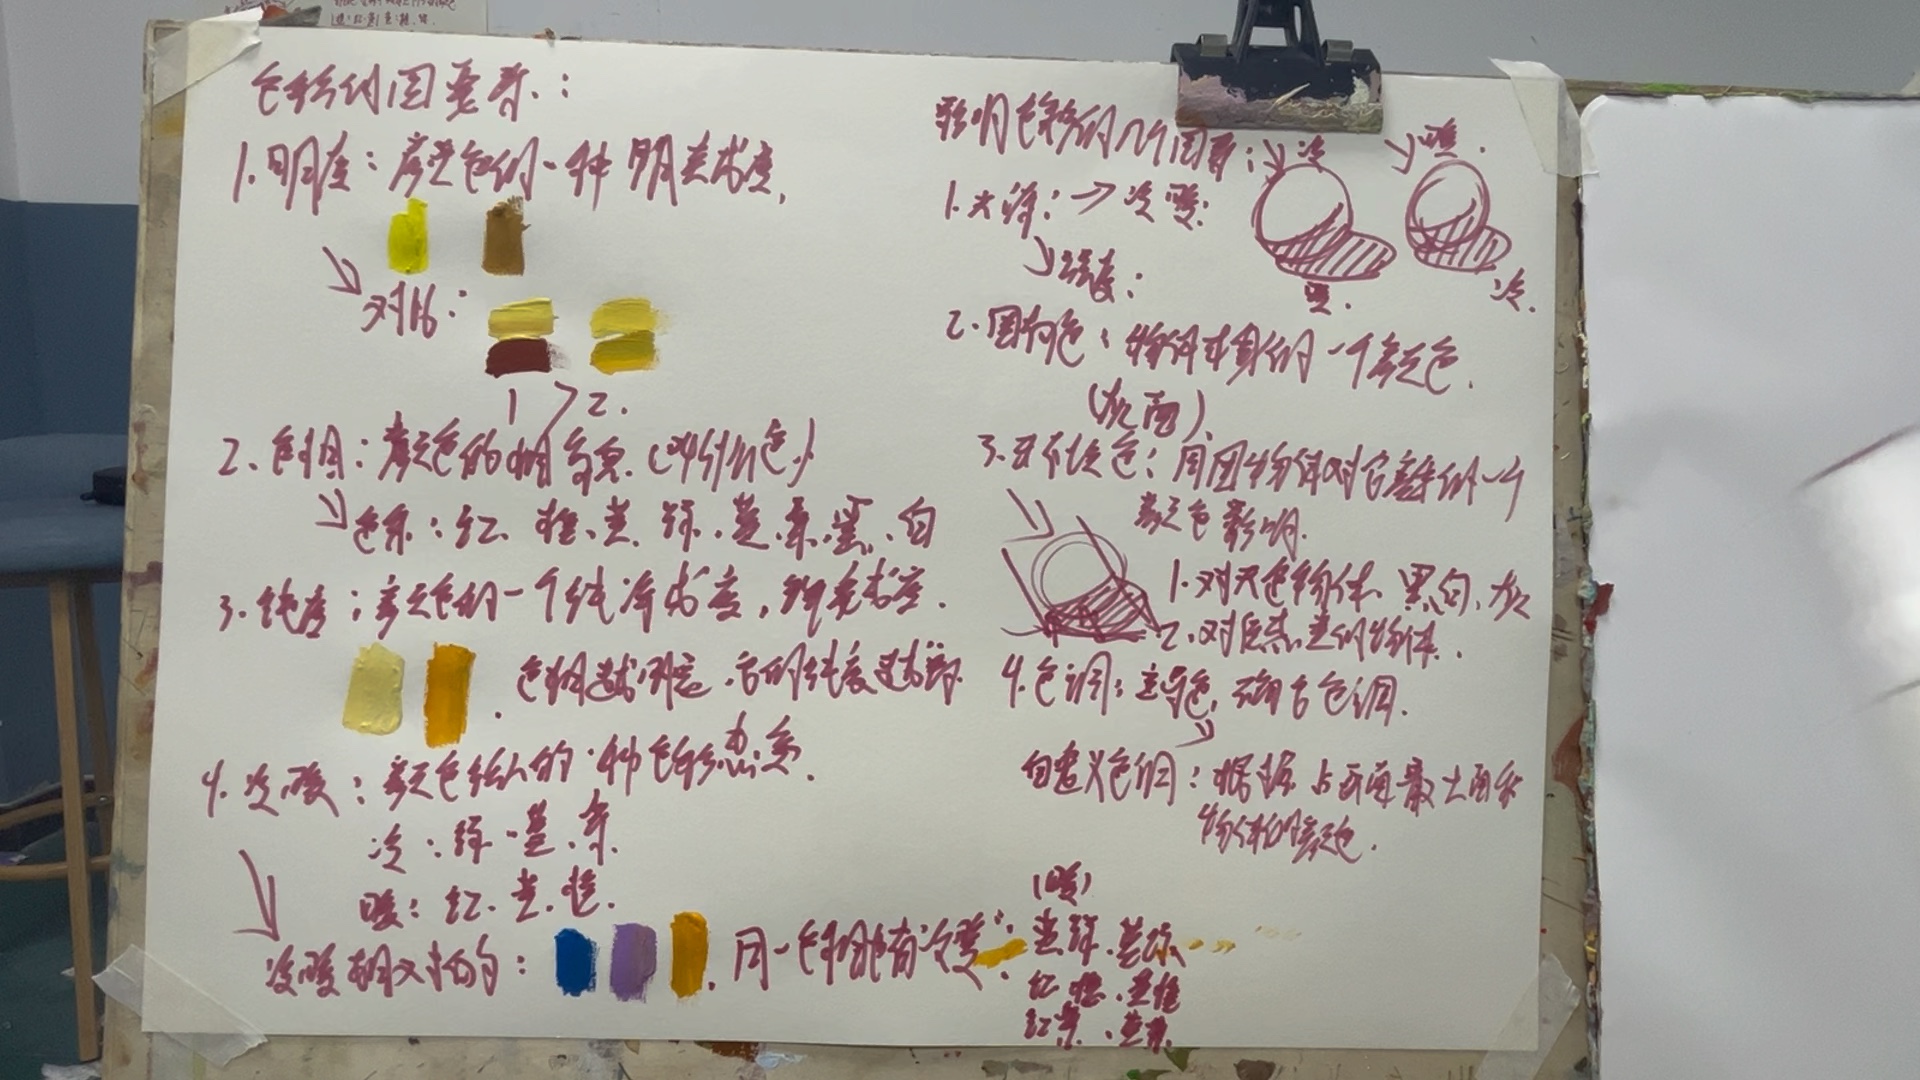 色彩的四要素：
1.明度：颜色的一种明亮程度，
对比：
1 > 2.
2.色相：颜色的相貌.（叫什么色）
色系：红、橙、黄、绿、蓝、紫、黑、白
3.纯度：颜色的一个纯净程度，鲜亮程度.
色相越明确，它的纯度越高
4.冷暖：颜色给人的一种色彩感觉.
冷：绿.蓝.紫.
暖：红.黄.橙.
冷暖相对的：
同一色相也有冷暖：
(暖)
黄绿.蓝绿
红橙.黄橙
红紫.蓝紫
影响色彩的几个因素：
冷
暖.
1.光源：→冷暖：
强度：
暖.
冷.
2.固有色：物体本身的一个颜色.
（灰面）
3.环境色：周围物体对它产生的一个
颜色影响.
1.对无色物体、黑、白、灰
2.对反光.亮的物体.
4.色调：主导色，确定色调.
自定义色调：根据占画面最大面积
物体的颜色.